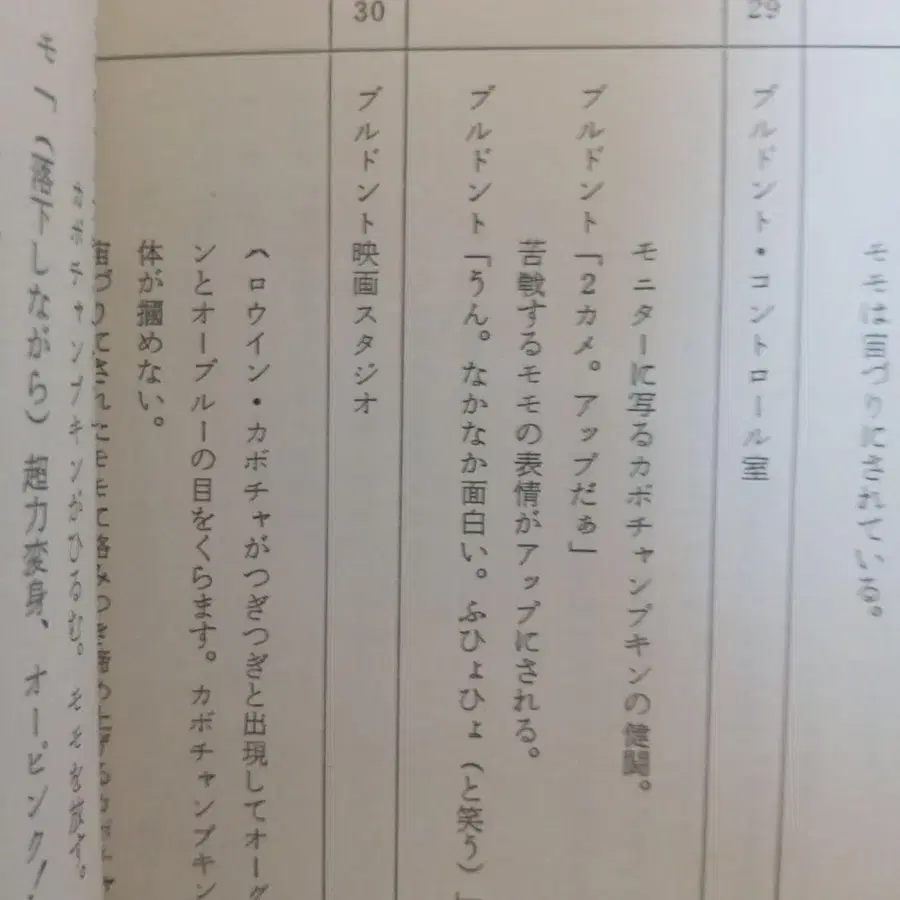 モモは宙づりにされている。
29
ブルドント・コントロール室
モニターに写るカボチャンプキンの健闘。
ブルドント「2カメ。アップだぁ」
苦戦するモモの表情がアップにされる。
ブルドント「うん。なかなか面白い。ふひょひょ(と笑う)」
30
ブルドント映画スタジオ
ハロウイン・カボチャがつぎつぎと出現してオーグ
ンとオーブルーの目をくらます。カボチャンプキン
体が摑めない。
宙づりにされたモモに絡みつき締め上げる
カボチャンプキンがひるむ。モモを放す。
モ「(落下しながら)超力変身、オーピンク!